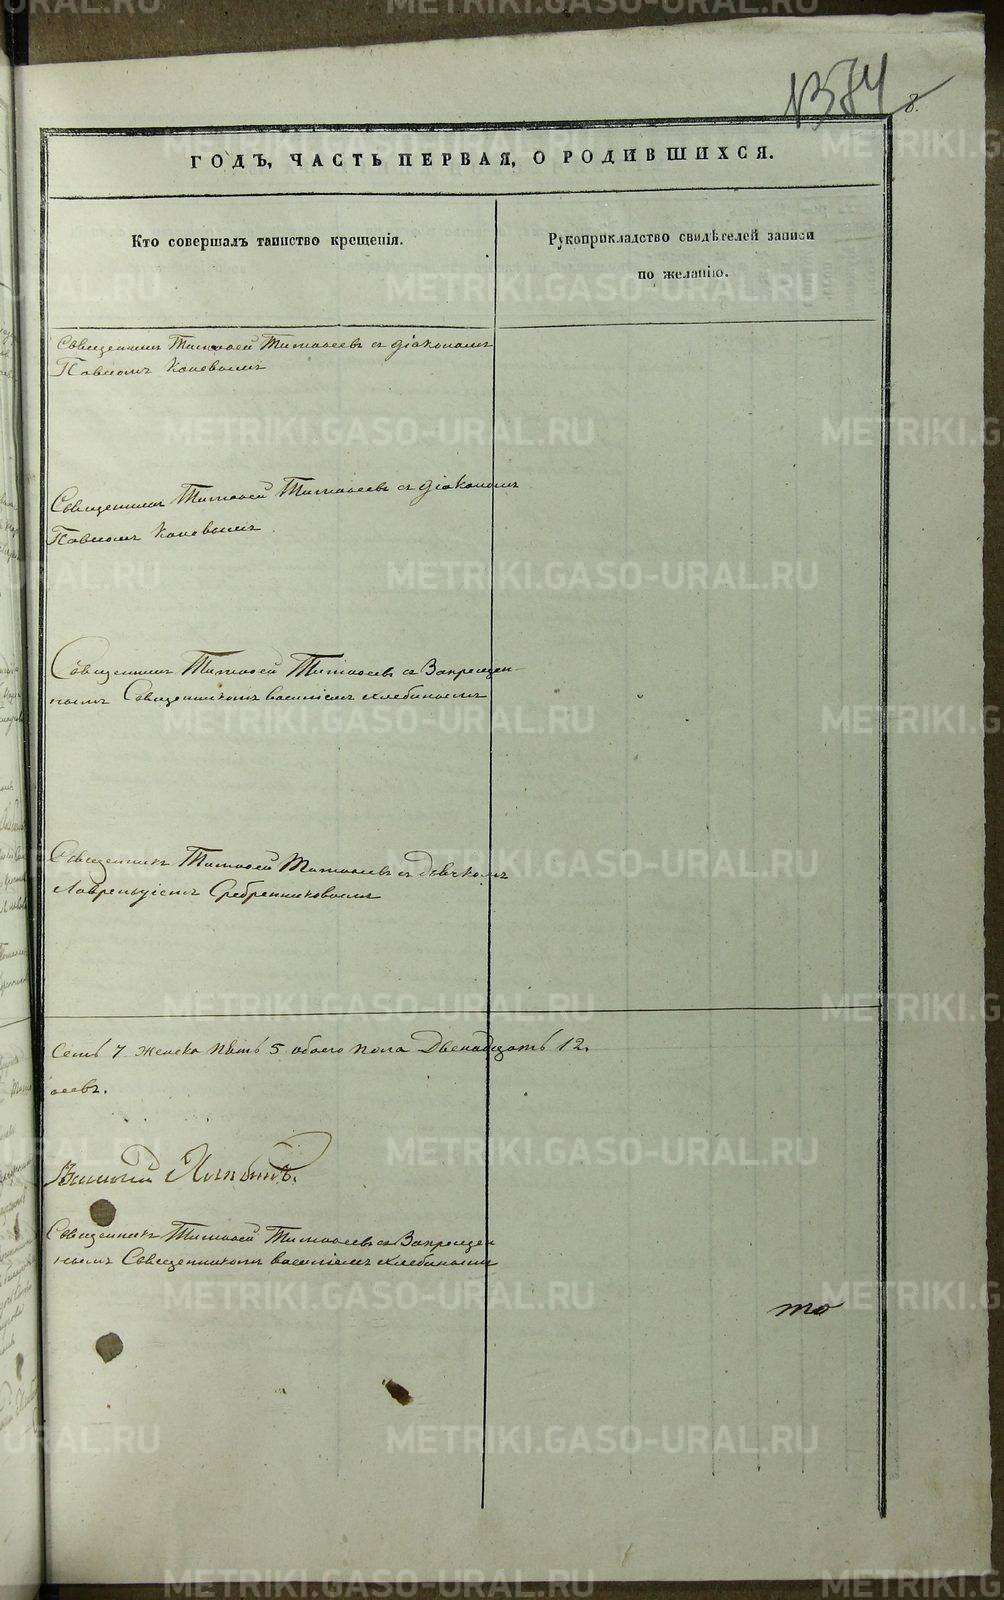 8.
ГОДЪ, ЧАСТЬ ПЕРВАЯ, О РОДИВШИХСЯ.
Кто совершалъ таинство крещенія.
Рукоприкладство свидѣтелей записи
по желанію.
Священникъ Тимоѳей Тимоѳеевъ съ діакономъ
Павломъ Коневымъ
Священникъ Тимоѳей Тимоѳеевъ съ діакономъ
Павломъ Коневымъ
Священникъ Тимоѳей Тимоѳеевъ съ Запрещен-
нымъ Священникомъ Василіемъ Хлебинымъ
Священникъ Тимоѳей Тимоѳеевъ съ Дьячкомъ
Лаврентіемъ Сребренниковымъ
семь 7 женска пять 5 обоего пола Двенадцать 12.
ѳеевъ.
Василій
Священникъ Тимоѳей Тимоѳеевъ съ Запрещен
нымъ Священникомъ Василіемъ Хлебинымъ
то
METRIKI.GASO-URAL.RU